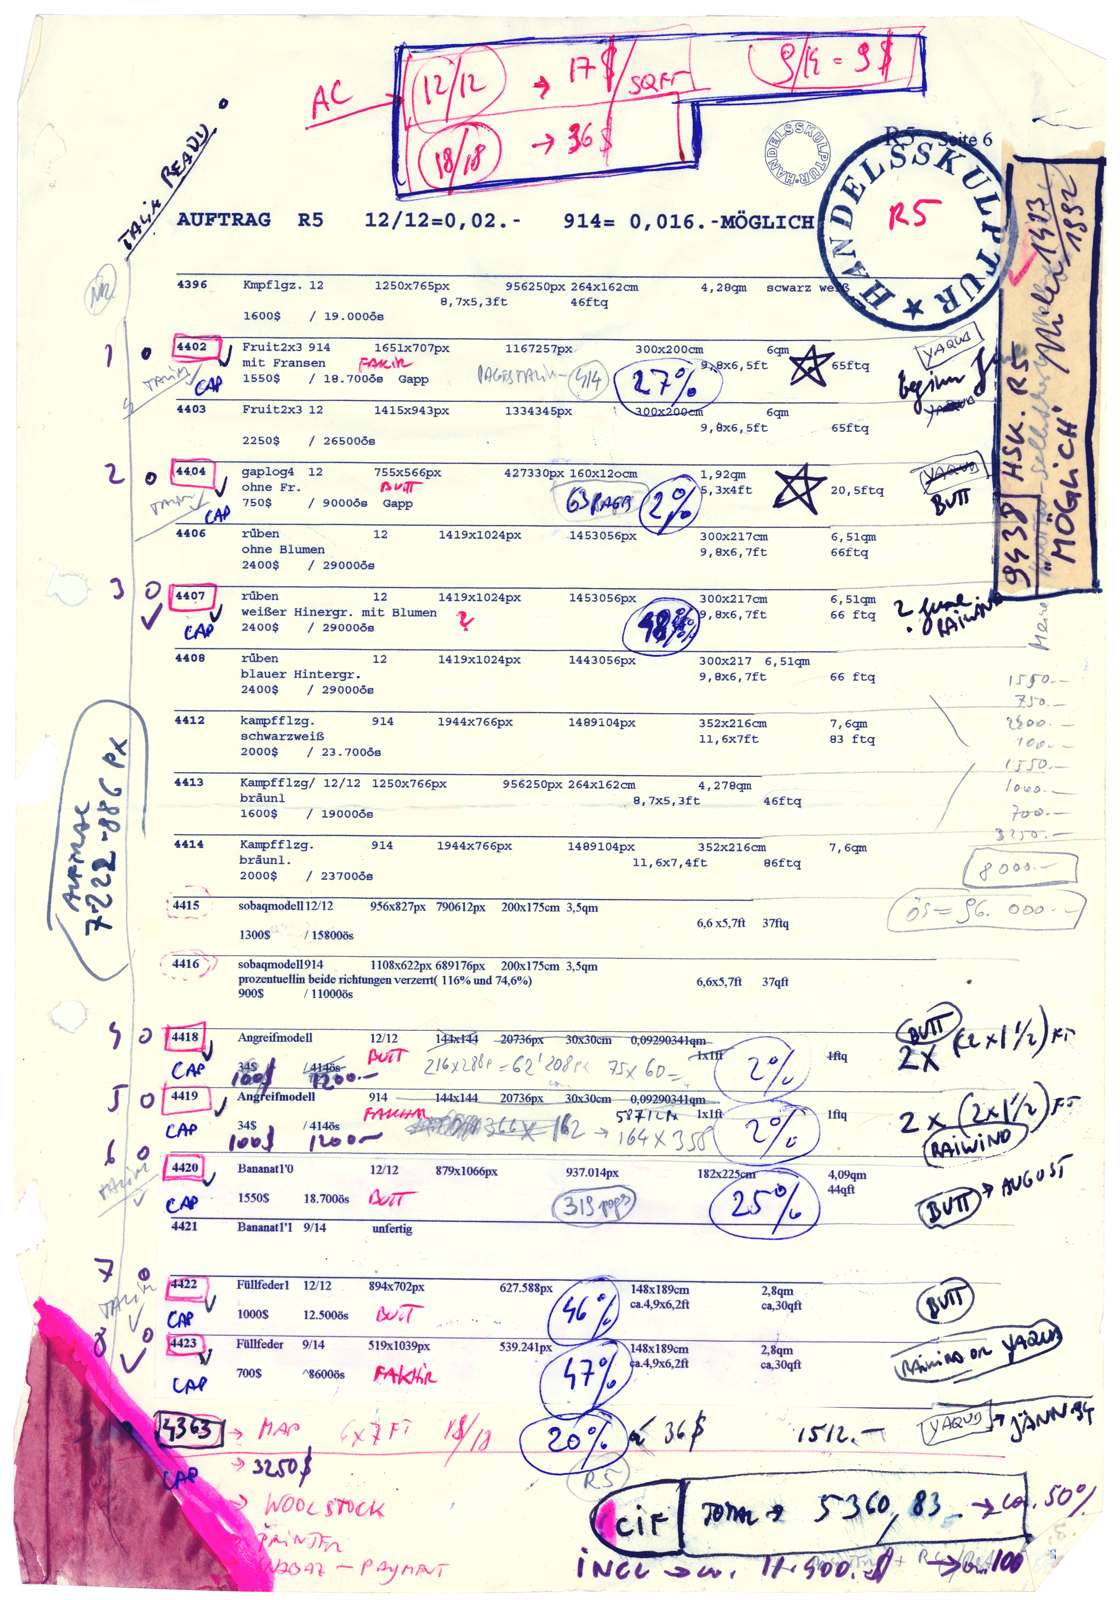 12/12 → 17$/SQFT
9/14 = 9$
AC
18/18 → 36$
HANDELSSKULPTUR·
R5 Seite 6
TALIA READY
HANDELSSKULPTUR ★
R5
AUFTRAG R5 12/12=0,02.- 914= 0,016.-MÖGLICH
9438 HSK. R5
"MÖGLICH"
4396 Kmpflgz. 12 1250x765px 956250px 264x162cm 4,28qm scwarz weiß
8,7x5,3ft 46ftq
1600$ / 19.000ös
1 4402 Fruit2x3 914 1651x707px 1167257px 300x200cm 6qm
mit Fransen FAKIR 9,8x6,5ft 65ftq YAQUB
CAP 1550$ / 18.700ös Gapp 27%
4403 Fruit2x3 12 1415x943px 1334345px 300x200cm 6qm
9,8x6,5ft 65ftq
2250$ / 26500ös
2 4404 gaplog4 12 755x566px 427330px 160x120cm 1,92qm
ohne Fr. BUTT 5,3x4ft 20,5ftq YAQUB
CAP 750$ / 9000ös Gapp 2% BUTT
4406 rüben 12 1419x1024px 1453056px 300x217cm 6,51qm
ohne Blumen 9,8x6,7ft 66ftq
2400$ / 29000ös
3 4407 rüben 12 1419x1024px 1453056px 300x217cm 6,51qm
weißer Hinergr. mit Blumen 9,8x6,7ft 66 ftq
CAP 2400$ / 29000ös ? 48% RAIWIND
4408 rüben 12 1419x1024px 1443056px 300x217 6,51qm
blauer Hintergr. 9,8x6,7ft 66 ftq
2400$ / 29000ös
1550.-
750.-
4412 kampfflzg. 914 1944x766px 1489104px 352x216cm 7,6qm
schwarzweiß 11,6x7ft 83 ftq
2000$ / 23.700ös
100.-
1550.-
4413 Kampfflzg/ 12/12 1250x766px 956250px 264x162cm 4,278qm
bräunl 8,7x5,3ft 46ftq
1600$ / 19000ös
1000.-
700.-
3250.-
4414 Kampfflzg. 914 1944x766px 1489104px 352x216cm 7,6qm
bräunl. 11,6x7,4ft 86ftq
2000$ / 23700ös
8000.-
7222-886 PX
4415 sobaqmodell12/12 956x827px 790612px 200x175cm 3,5qm
6,6 x5,7ft 37ftq
1300$ / 15800ös
ÖS = 96.000.-
4416 sobaqmodell914 1108x622px 689176px 200x175cm 3,5qm
prozentuellin beide richtungen verzerrt( 116% und 74,6%) 6,6x5,7ft 37qft
900$ / 11000ös
4 4418 Angreifmodell 12/12 144x144 20736px 30x30cm 0,09290341qm BUTT
BUTT 1x1ft 1ftq 2x (2x1½) FT
CAP 34$ / 414ös 75x60= 2%
100$ 1200.-
5 4419 Angreifmodell 914 144x144 20736px 30x30cm 0,09290341qm
FAKHIR 1x1ft 1ftq 2x (2x1½) FT
CAP 34$ / 414ös → 164x358 2%
100$ 1200.- RAIWIND
6 4420 Bananat1'0 12/12 879x1066px 937.014px 182x225cm 4,09qm
44qft
CAP 1550$ 18.700ös BUTT 25% BUTT → AUGUST
4421 Bananat1'1 9/14 unfertig
7 4422 Füllfeder1 12/12 894x702px 627.588px 148x189cm 2,8qm
ca.4,9x6,2ft ca,30qft
CAP 1000$ 12.500ös BUTT 46% BUTT
8 4423 Füllfeder 9/14 519x1039px 539.241px 148x189cm 2,8qm
ca.4,9x6,2ft ca,30qft
CAP 700$ ^8600ös FAKHIR 47% RAIWIND OR YAQUB
4363 → MAP 6x7 FT 18/18 20% à 36$ 1512.- YAQUB → JÄNN.94
CAP → 3250$ R5
→ WOOLSTOCK
PRINTER
CIF TOTAL → 5360,83 → ca. 50%
- PAYMENT
INCL → ca. 11.900.$